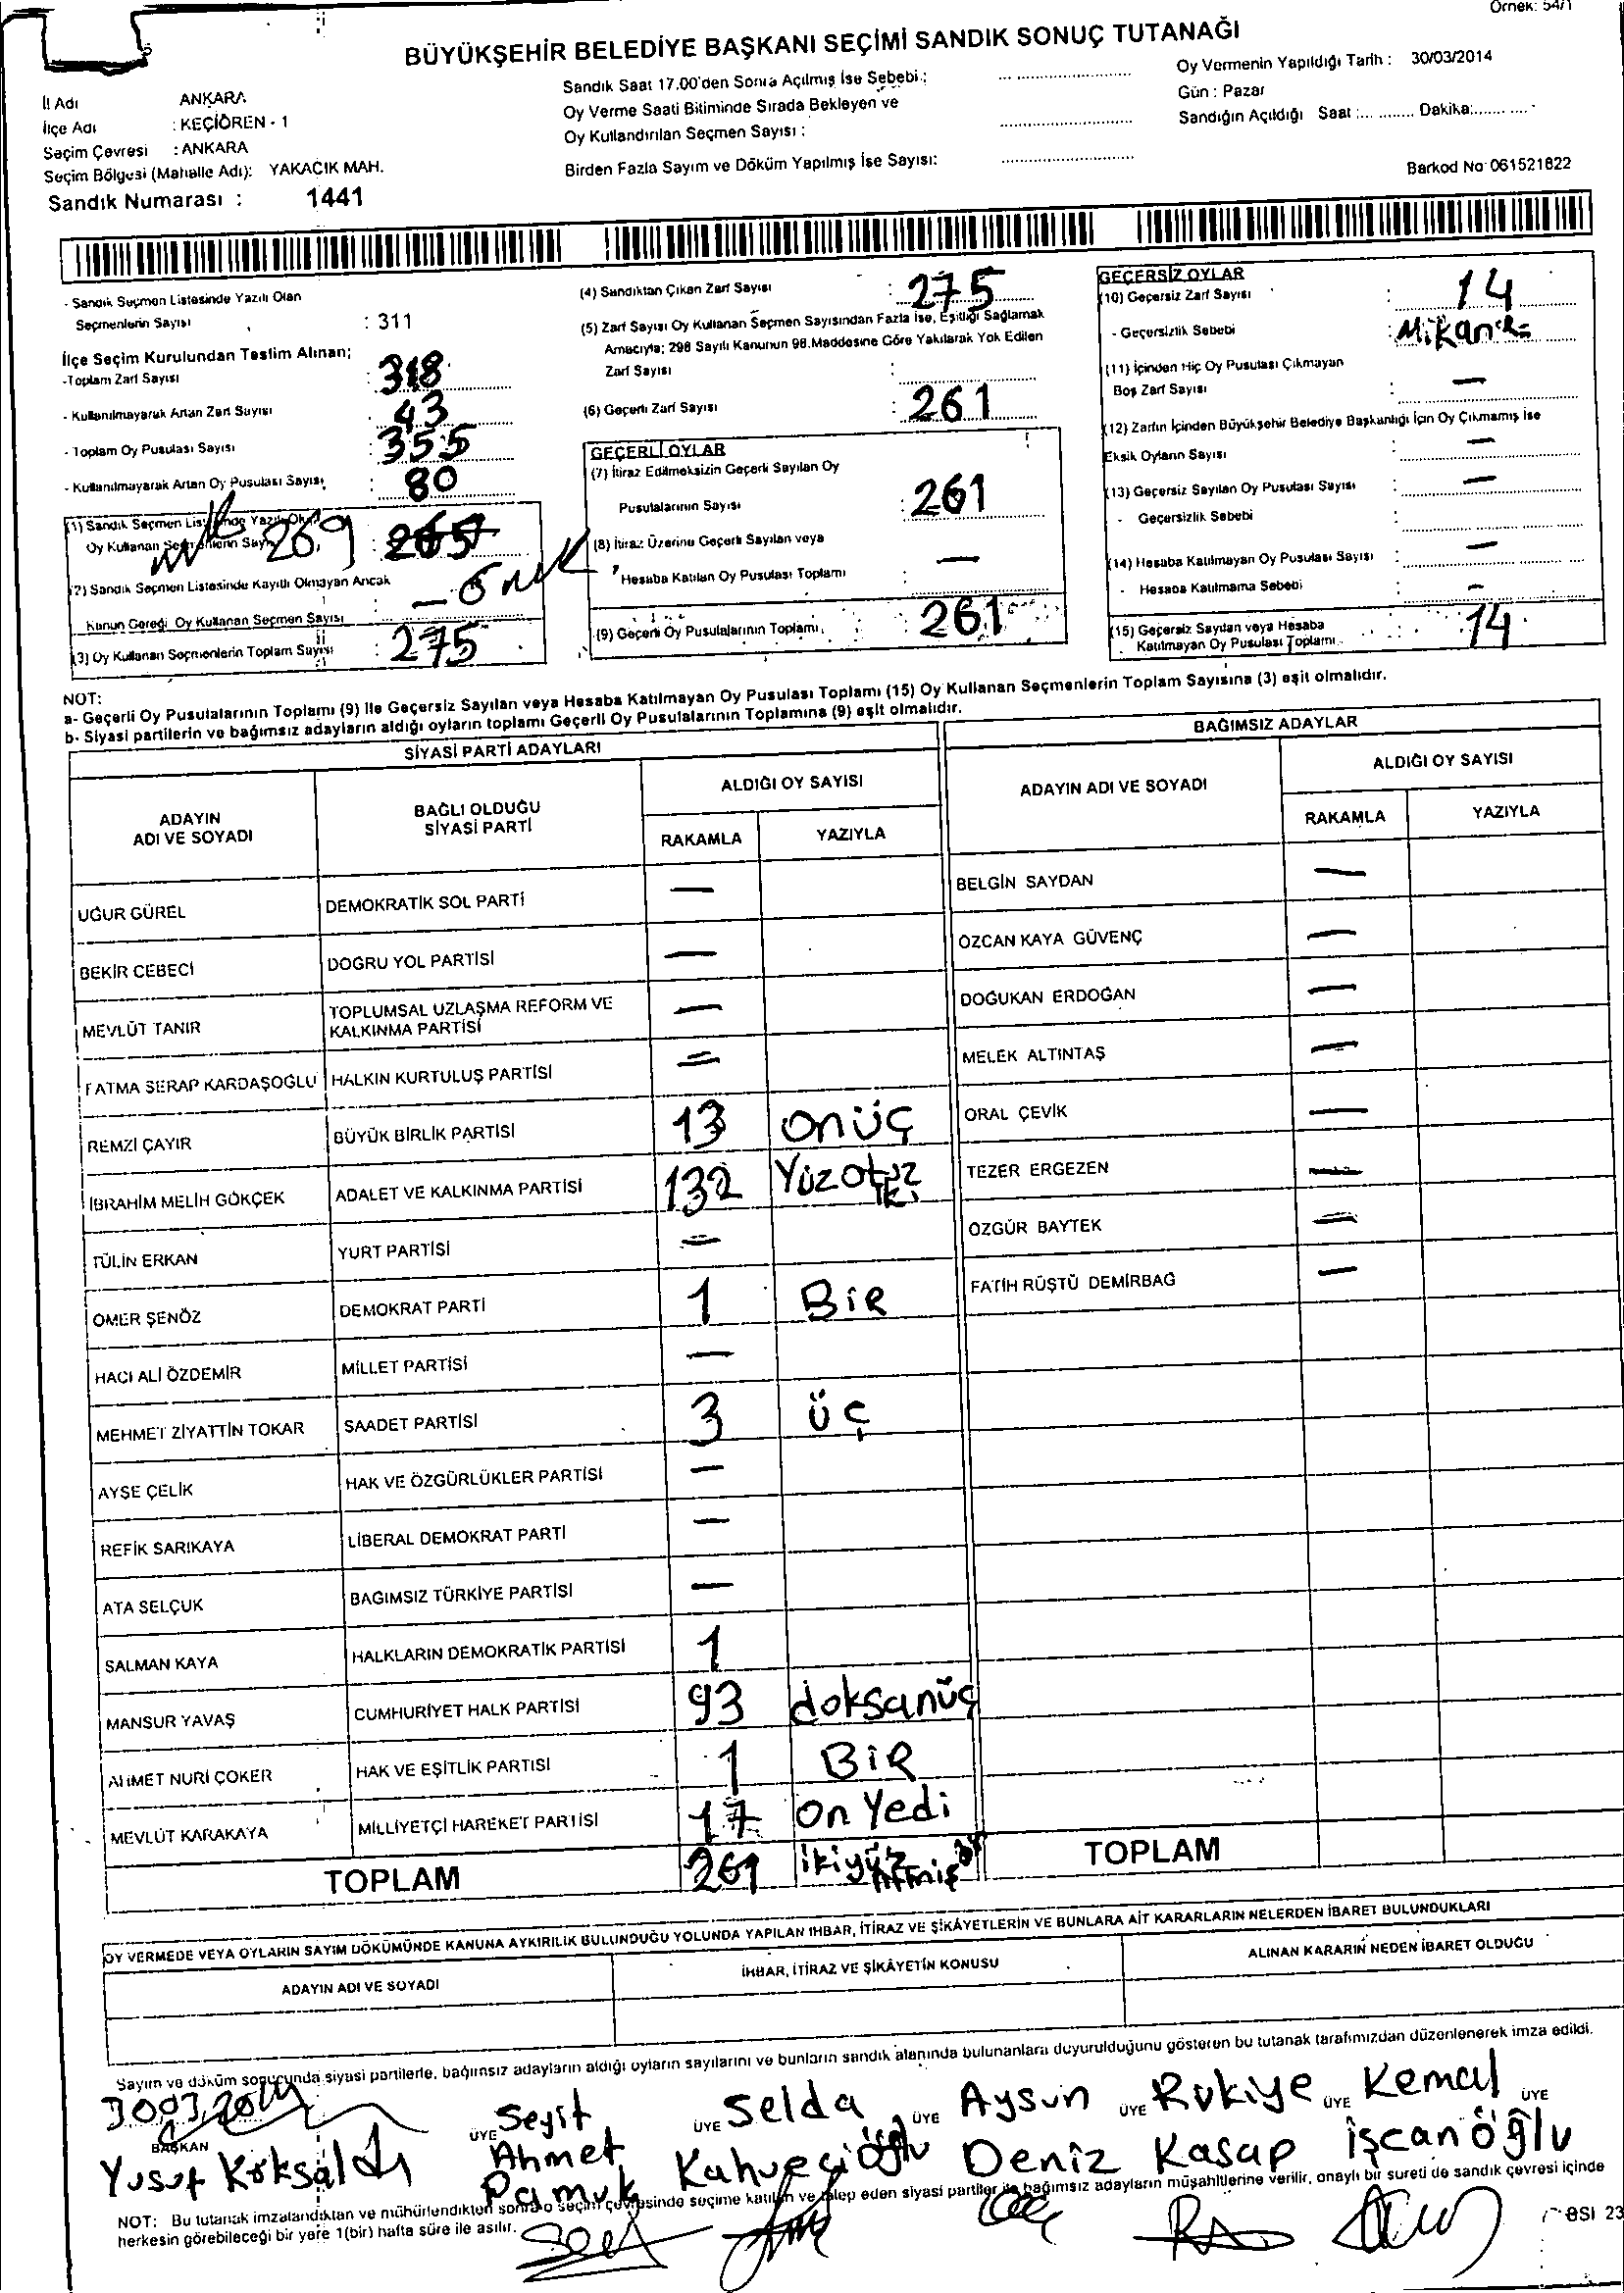 Örnek: 54/1
BÜYÜKŞEHİR BELEDİYE BAŞKANI SEÇİMİ SANDIK SONUÇ TUTANAĞI
İl Adı ANKARA
İlçe Adı : KEÇİÖREN - 1
Seçim Çevresi : ANKARA
Seçim Bölgesi (Mahalle Adı): YAKACIK MAH.
Sandık Numarası : 1441
Sandık Saat 17.00'den Sonra Açılmış İse Sebebi :
Oy Verme Saati Bitiminde Sırada Bekleyen ve
Oy Kullandırılan Seçmen Sayısı :
Birden Fazla Sayım ve Döküm Yapılmış İse Sayısı:
Oy Vermenin Yapıldığı Tarih : 30/03/2014
Gün : Pazar
Sandığın Açıldığı Saat :............ Dakika:............
Barkod No 061521822
- Sandık Seçmen Listesinde Yazılı Olan
Seçmenlerin Sayısı : 311
İlçe Seçim Kurulundan Teslim Alınan;
-Toplam Zarf Sayısı : 318
- Kullanılmayarak Artan Zarf Sayısı : 43
- Toplam Oy Pusulası Sayısı : 355
- Kullanılmayarak Artan Oy Pusulası Sayısı : 80
(1) Sandık Seçmen Listesinde Yazılı Olup
Oy Kullanan Seçmenlerin Sayısı 269 :
(2) Sandık Seçmen Listesinde Kayıtlı Olmayan Ancak
Kanun Gereği Oy Kullanan Seçmen Sayısı : 6
(3) Oy Kullanan Seçmenlerin Toplam Sayısı : 275
(4) Sandıktan Çıkan Zarf Sayısı : 275
(5) Zarf Sayısı Oy Kullanan Seçmen Sayısından Fazla İse, Eşitliği Sağlamak
Amacıyla; 298 Sayılı Kanunun 98.Maddesine Göre Yakılarak Yok Edilen
Zarf Sayısı :
(6) Geçerli Zarf Sayısı : 261
GEÇERLİ OYLAR
(7) İtiraz Edilmeksizin Geçerli Sayılan Oy
Pusulalarının Sayısı : 261
(8) İtiraz Üzerine Geçerli Sayılan veya
Hesaba Katılan Oy Pusulası Toplamı : —
(9) Geçerli Oy Pusulalarının Toplamı : 261
GEÇERSİZ OYLAR
(10) Geçersiz Zarf Sayısı : 14
- Geçersizlik Sebebi :
(11) İçinden Hiç Oy Pusulası Çıkmayan
Boş Zarf Sayısı : —
(12) Zarfın İçinden Büyükşehir Belediye Başkanlığı İçin Oy Çıkmamış İse
Eksik Oyların Sayısı : —
(13) Geçersiz Sayılan Oy Pusulası Sayısı : —
- Geçersizlik Sebebi :
(14) Hesaba Katılmayan Oy Pusulası Sayısı : —
- Hesaba Katılmama Sebebi : —
(15) Geçersiz Sayılan veya Hesaba
Katılmayan Oy Pusulası Toplamı : 14
NOT:
a- Geçerli Oy Pusulalarının Toplamı (9) ile Geçersiz Sayılan veya Hesaba Katılmayan Oy Pusulası Toplamı (15) Oy Kullanan Seçmenlerin Toplam Sayısına (3) eşit olmalıdır.
b- Siyasi partilerin ve bağımsız adayların aldığı oyların toplamı Geçerli Oy Pusulalarının Toplamına (9) eşit olmalıdır.
SİYASİ PARTİ ADAYLARI
ADAYIN ADI VE SOYADI BAĞLI OLDUĞU SİYASİ PARTİ ALDIĞI OY SAYISI
RAKAMLA YAZIYLA
UĞUR GÜREL DEMOKRATİK SOL PARTİ —
BEKİR CEBECİ DOĞRU YOL PARTİSİ —
MEVLÜT TANIR TOPLUMSAL UZLAŞMA REFORM VE KALKINMA PARTİSİ —
FATMA SERAP KARDAŞOĞLU HALKIN KURTULUŞ PARTİSİ —
REMZİ ÇAYIR BÜYÜK BİRLİK PARTİSİ 13 onüç
İBRAHİM MELİH GÖKÇEK ADALET VE KALKINMA PARTİSİ 132 Yüzotuz iki
TÜLİN ERKAN YURT PARTİSİ —
ÖMER ŞENÖZ DEMOKRAT PARTİ 1 BİR
HACI ALİ ÖZDEMİR MİLLET PARTİSİ —
MEHMET ZİYATTİN TOKAR SAADET PARTİSİ 3 üç
AYŞE ÇELİK HAK VE ÖZGÜRLÜKLER PARTİSİ —
REFİK SARIKAYA LİBERAL DEMOKRAT PARTİ —
ATA SELÇUK BAĞIMSIZ TÜRKİYE PARTİSİ —
SALMAN KAYA HALKLARIN DEMOKRATİK PARTİSİ 1
MANSUR YAVAŞ CUMHURİYET HALK PARTİSİ 93 doksanüç
AHMET NURİ ÇOKER HAK VE EŞİTLİK PARTİSİ 1 BİR
MEVLÜT KARAKAYA MİLLİYETÇİ HAREKET PARTİSİ 17 on Yedi
TOPLAM 261 ikiyüz Atmış bir
BAĞIMSIZ ADAYLAR
ADAYIN ADI VE SOYADI ALDIĞI OY SAYISI
RAKAMLA YAZIYLA
BELGİN SAYDAN —
ÖZCAN KAYA GÜVENÇ —
DOĞUKAN ERDOĞAN —
MELEK ALTINTAŞ —
ORAL ÇEVİK —
TEZER ERGEZEN —
ÖZGÜR BAYTEK —
FATİH RÜŞTÜ DEMİRBAĞ —
TOPLAM
OY VERMEDE VEYA OYLARIN SAYIM DÖKÜMÜNDE KANUNA AYKIRILIK BULUNDUĞU YOLUNDA YAPILAN İHBAR, İTİRAZ VE ŞİKÂYETLERİN VE BUNLARA AİT KARARLARIN NELERDEN İBARET BULUNDUKLARI
ADAYIN ADI VE SOYADI İHBAR, İTİRAZ VE ŞİKÂYETİN KONUSU ALINAN KARARIN NEDEN İBARET OLDUĞU
Sayım ve döküm sonucunda siyasi partilerle, bağımsız adayların aldığı oyların sayılarını ve bunların sandık alanında bulunanlara duyurulduğunu gösteren bu tutanak tarafımızdan düzenlenerek imza edildi.
30032014
BAŞKAN ÜYE ÜYE ÜYE ÜYE ÜYE ÜYE
Yusuf Köksaldı
Seyit Ahmet Pamuk
Selda Kahvecioğlu
Aysun Deniz
Rukiye Kasap
Kemal İşcanoğlu
NOT: Bu tutanak imzalandıktan ve mühürlendikten sonra o seçim çevresinde seçime katılan ve talep eden siyasi partiler ile bağımsız adayların müşahitlerine verilir, onaylı bir sureti de sandık çevresi içinde
herkesin görebileceği bir yere 1(bir) hafta süre ile asılır.